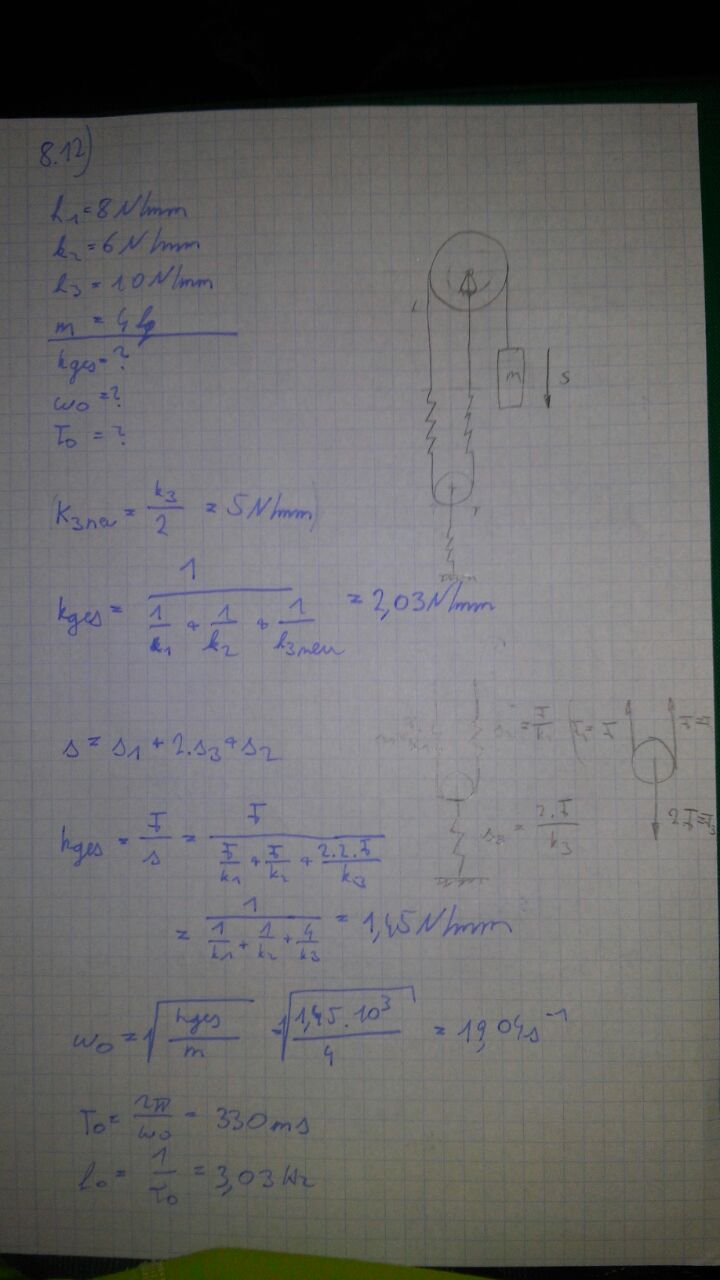 8.12)
k₁ = 8 N/mm
k₂ = 6 N/mm
k₃ = 10 N/mm
m = 4 kg
kges = ?
ω₀ = ?
T₀ = ?
m
s
r
(K₃neu = k₃/2 = 5 N/mm)
kges = 1/(1/k₁ + 1/k₂ + 1/k₃neu) = 2,03 N/mm
s = s₁ + 2.s₃ + s₂
= F/k₂
kges = F/s = F/(F/k₁ + F/k₂ + 2.2.F/k₃)
= 2.F/k₃
= 1/(1/k₁ + 1/k₂ + 4/k₃) = 1,45 N/mm
ω₀ = √(kges/m) = √(1,45.10³/4) = 19,04 s⁻¹
T₀ = 2π/ω₀ = 330 ms
f₀ = 1/T₀ = 3,03 Hz